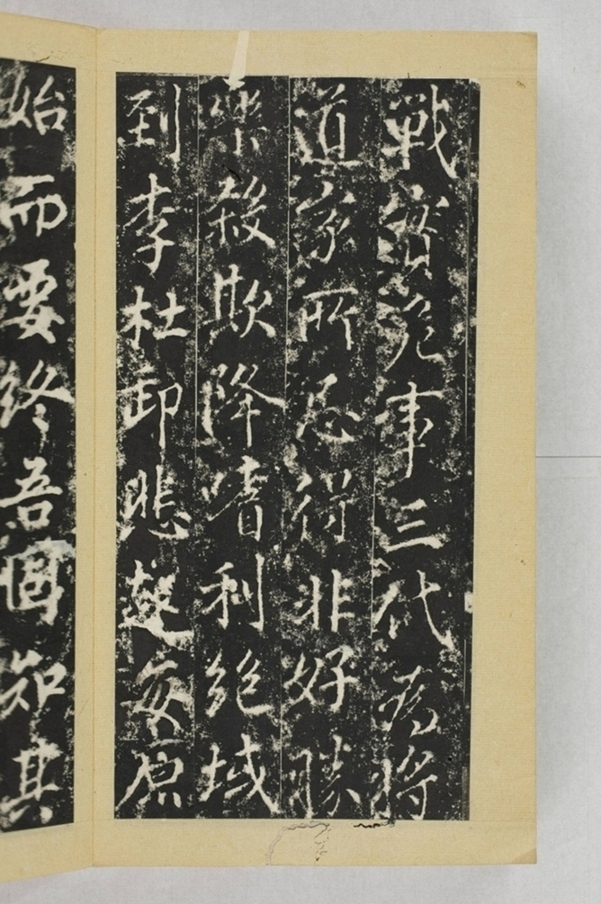 戰實危事三代為將
道家所忌得非好勝
樂殺欺降嗜利絕域
到李杜卸悲妄原
始而要終吾固知其